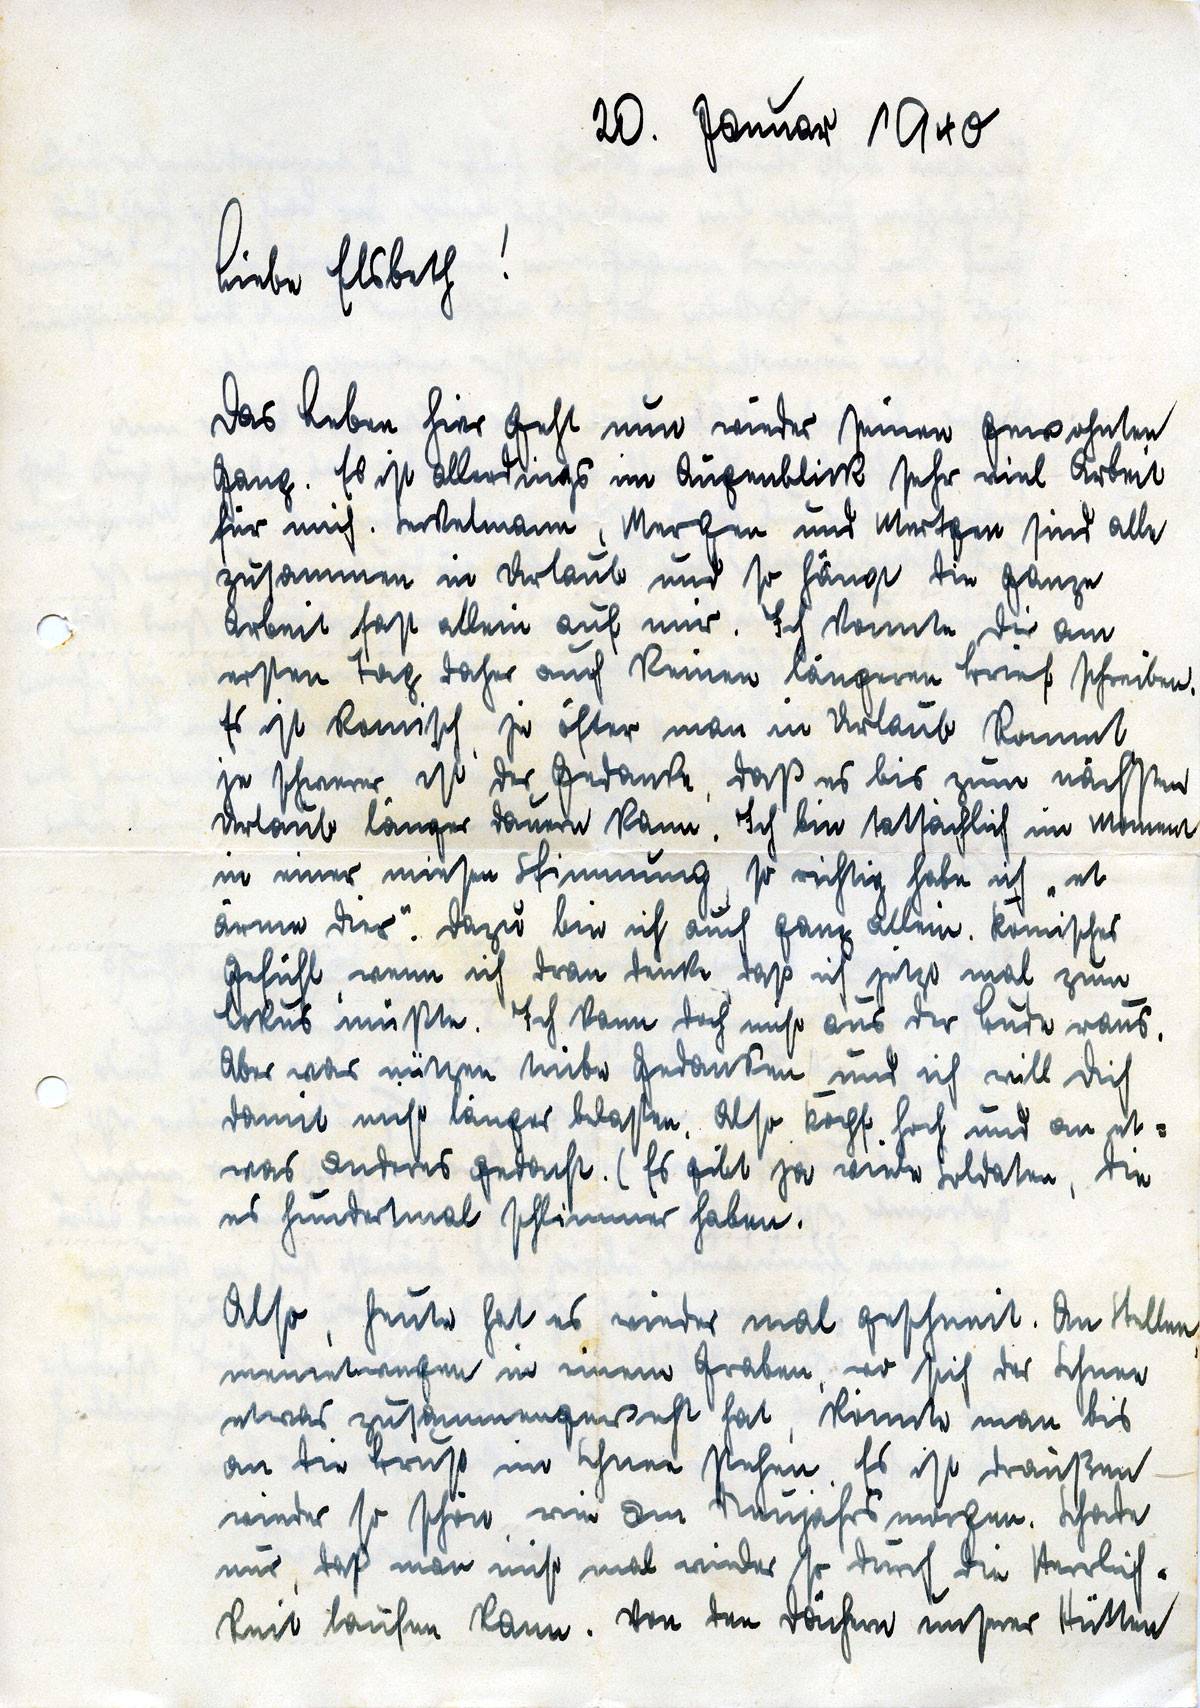 20. Januar 1940
Liebe Elsbeth!
Das Leben hier geht nun wieder seinen gewohnten
Gang. Es ist allerdings im Augenblick sehr viel Arbeit
für mich. Mergen und sind alle
zusammen in Urlaub und so hängt die ganze
Arbeit fast allein auf mir. Ich konnte Dir am
ersten Tag daher auch keinen längeren Brief schreiben.
Es ist komisch, je öfter man in Urlaub kommt
je schwerer ist der Gedanke, daß es bis zum nächsten
Urlaub länger dauern kann. Ich bin tatsächlich im Moment
in einer miesen Stimmung, so richtig habe ich „et
ärme Dier". Dazu bin ich auch ganz allein. Komisches
Gefühl, wenn ich dran denke, daß ich jetzt mal zum
Lokus müßte. Ich kann doch nicht aus der Bude raus.
Aber was nützen trübe Gedanken und ich will Dich
damit nicht länger belasten. Also Kopf hoch und an et=
was anderes gedacht. (Es gibt ja viele Soldaten, die
es hundertmal schlimmer haben.
Also, heute hat es wieder mal geschneit. An Stellen,
meinetwegen in einem Graben, wo sich der Schnee
etwas zusammengeweht hat, könnte man bis
an die Brust im Schnee stehen. Es ist draußen
wieder so schön wie am Neujahrsmorgen. Schade
nur, daß man nicht mal wieder so durch die Herrlich=
keit laufen kann. Von den Dächern unserer Hütten